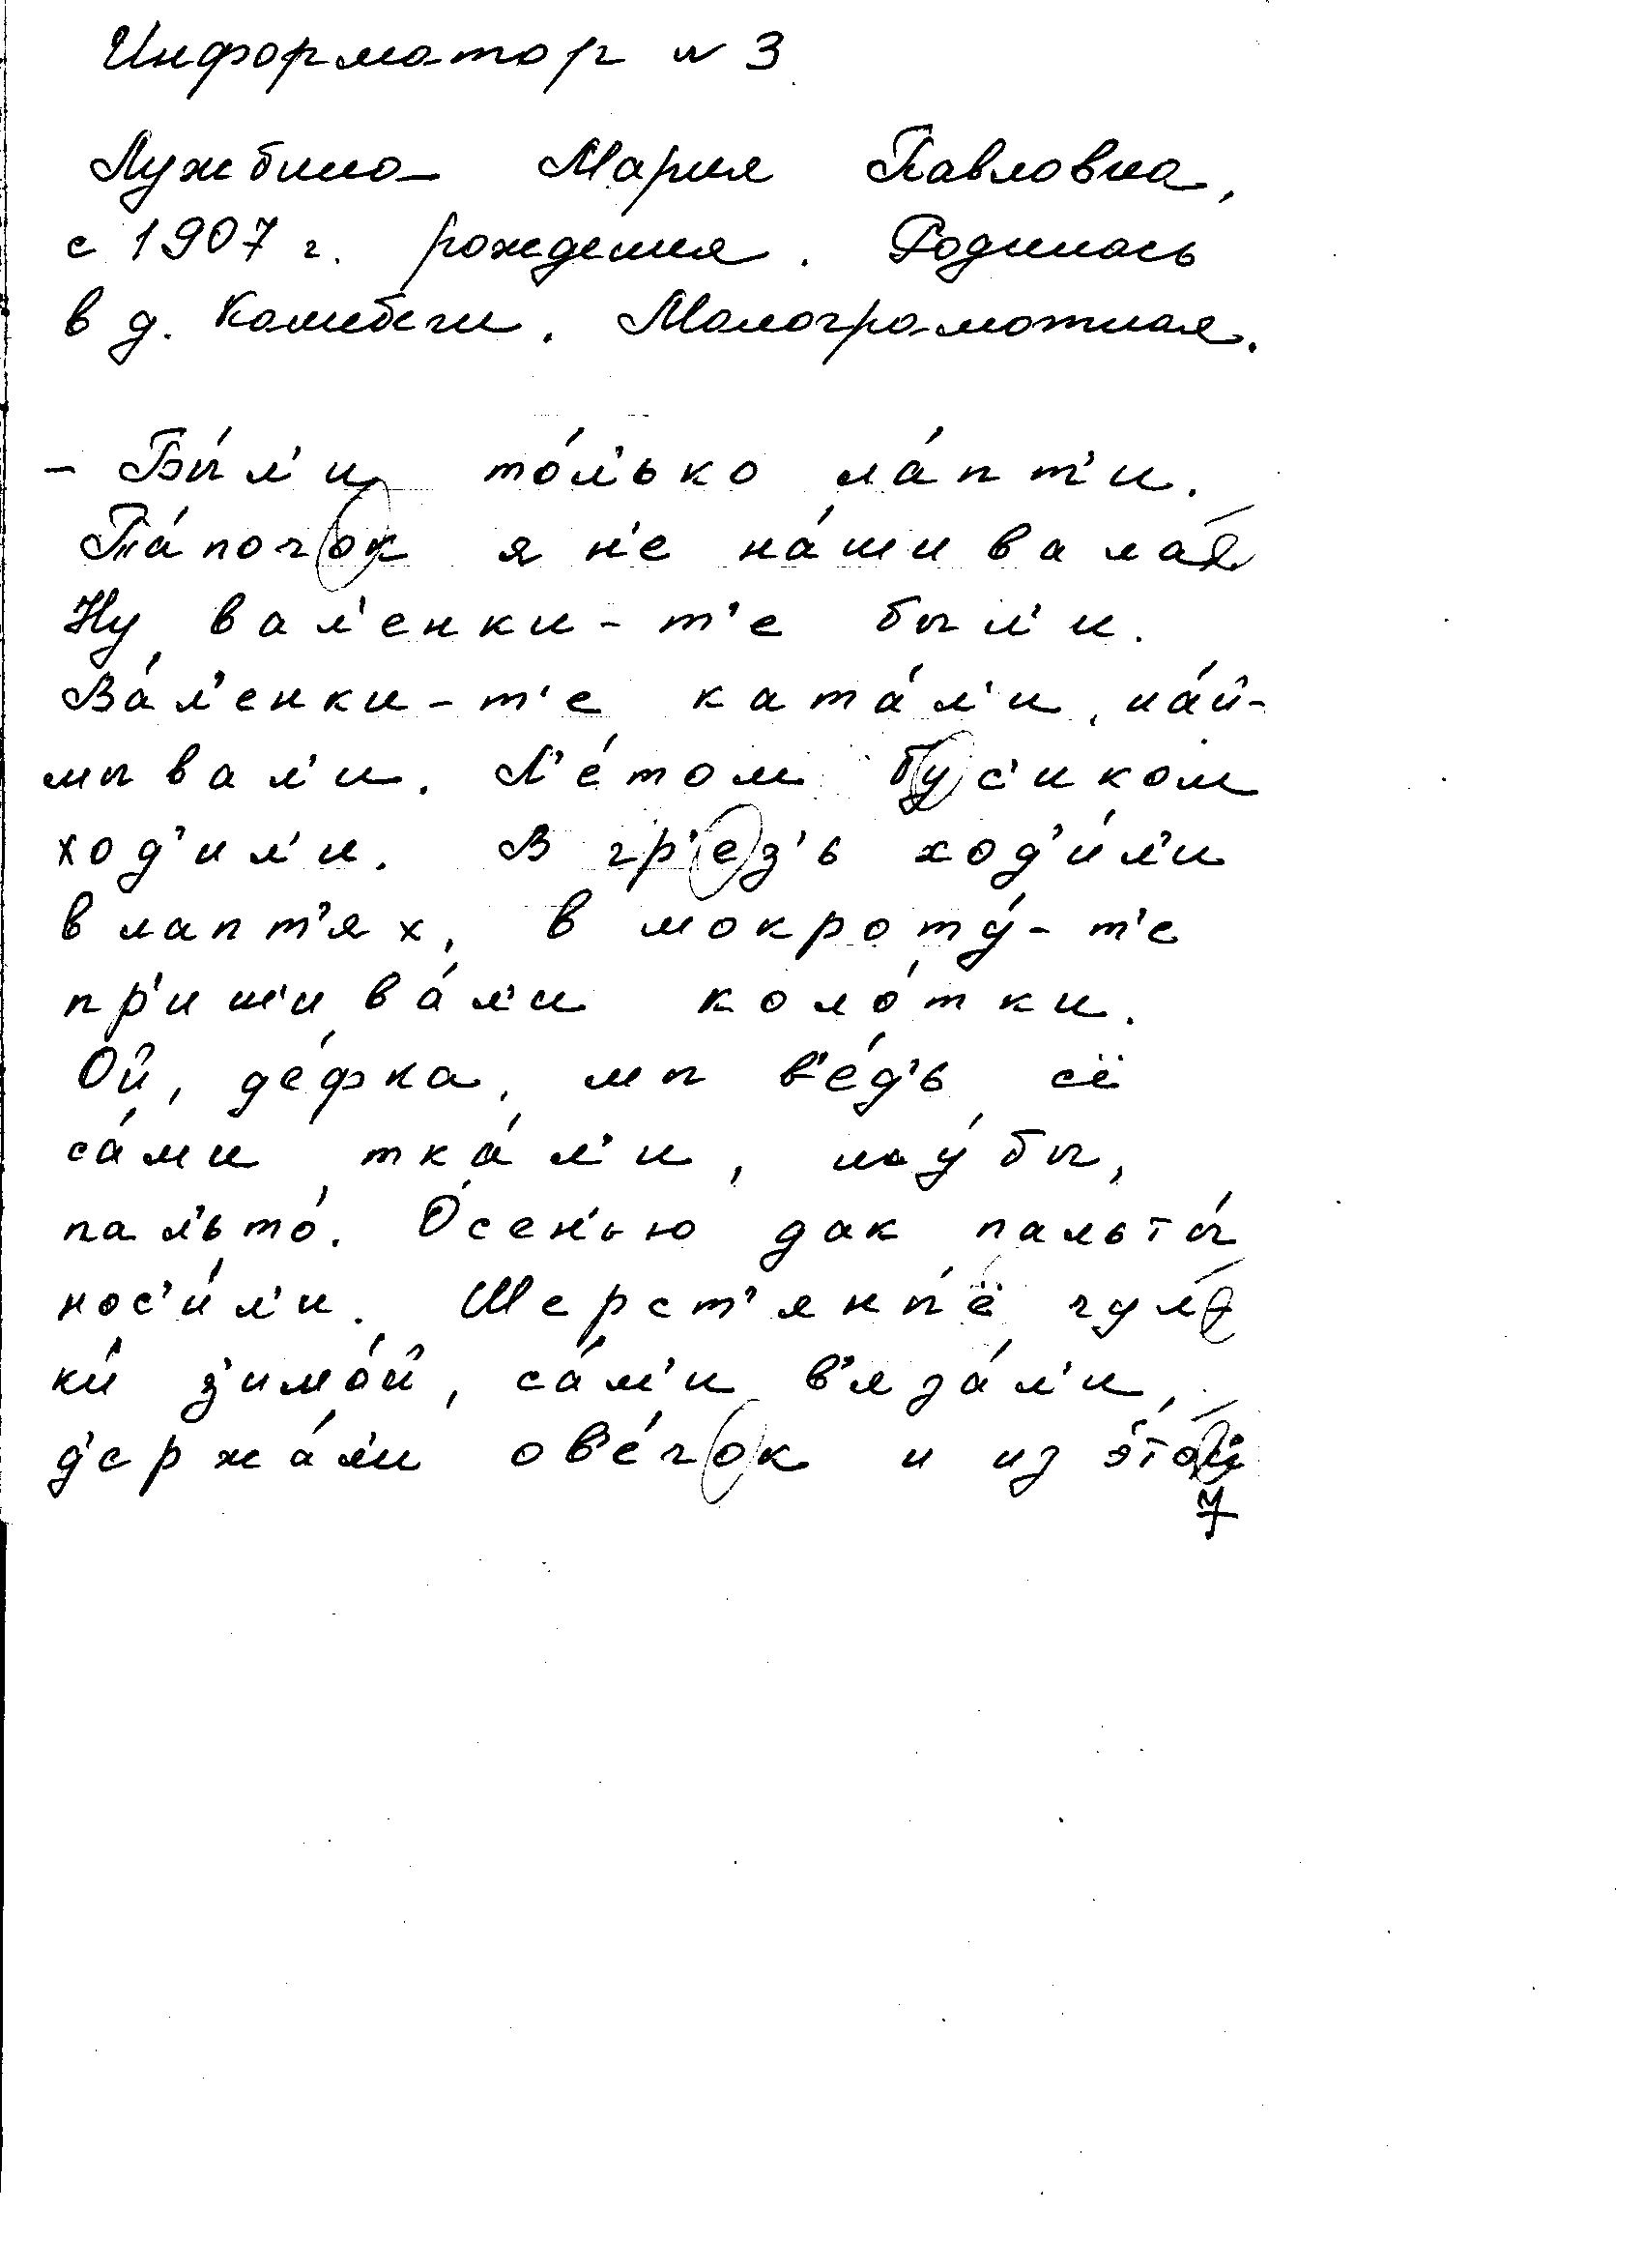 Информатор № 3
Лужбина Мария Павловна,
с 1907 г. рождения. Родилась
в д. Малограмотная.
– Бы́л'и то́л'ько ла́пт'и.
Та́почок я н'е на́шивалая
Ну вал'енки-т'е был'и.
Ва́л'енки-т'е ката́л'и, на́й-
мывал'и. Л'е́том бус'иком
ход'ил'и. В гр'ез'ь ход'и́л'и
в лапт'ях, в мокроту́-т'е
пр'иш'ива́л'и коло́тки.
Ой, де́фка, мы в'е́д'ь сё
са́ми тка́л'и, шу́бы,
пал'ьто́. О́сен'ью дак пальты́
нос'и́л'и. Шерст'яны́ё чул-
ки́ з'имо́й, са́м'и в'яза́л'и,
д'ержа́л'и ов'е́чок и из э́той
7